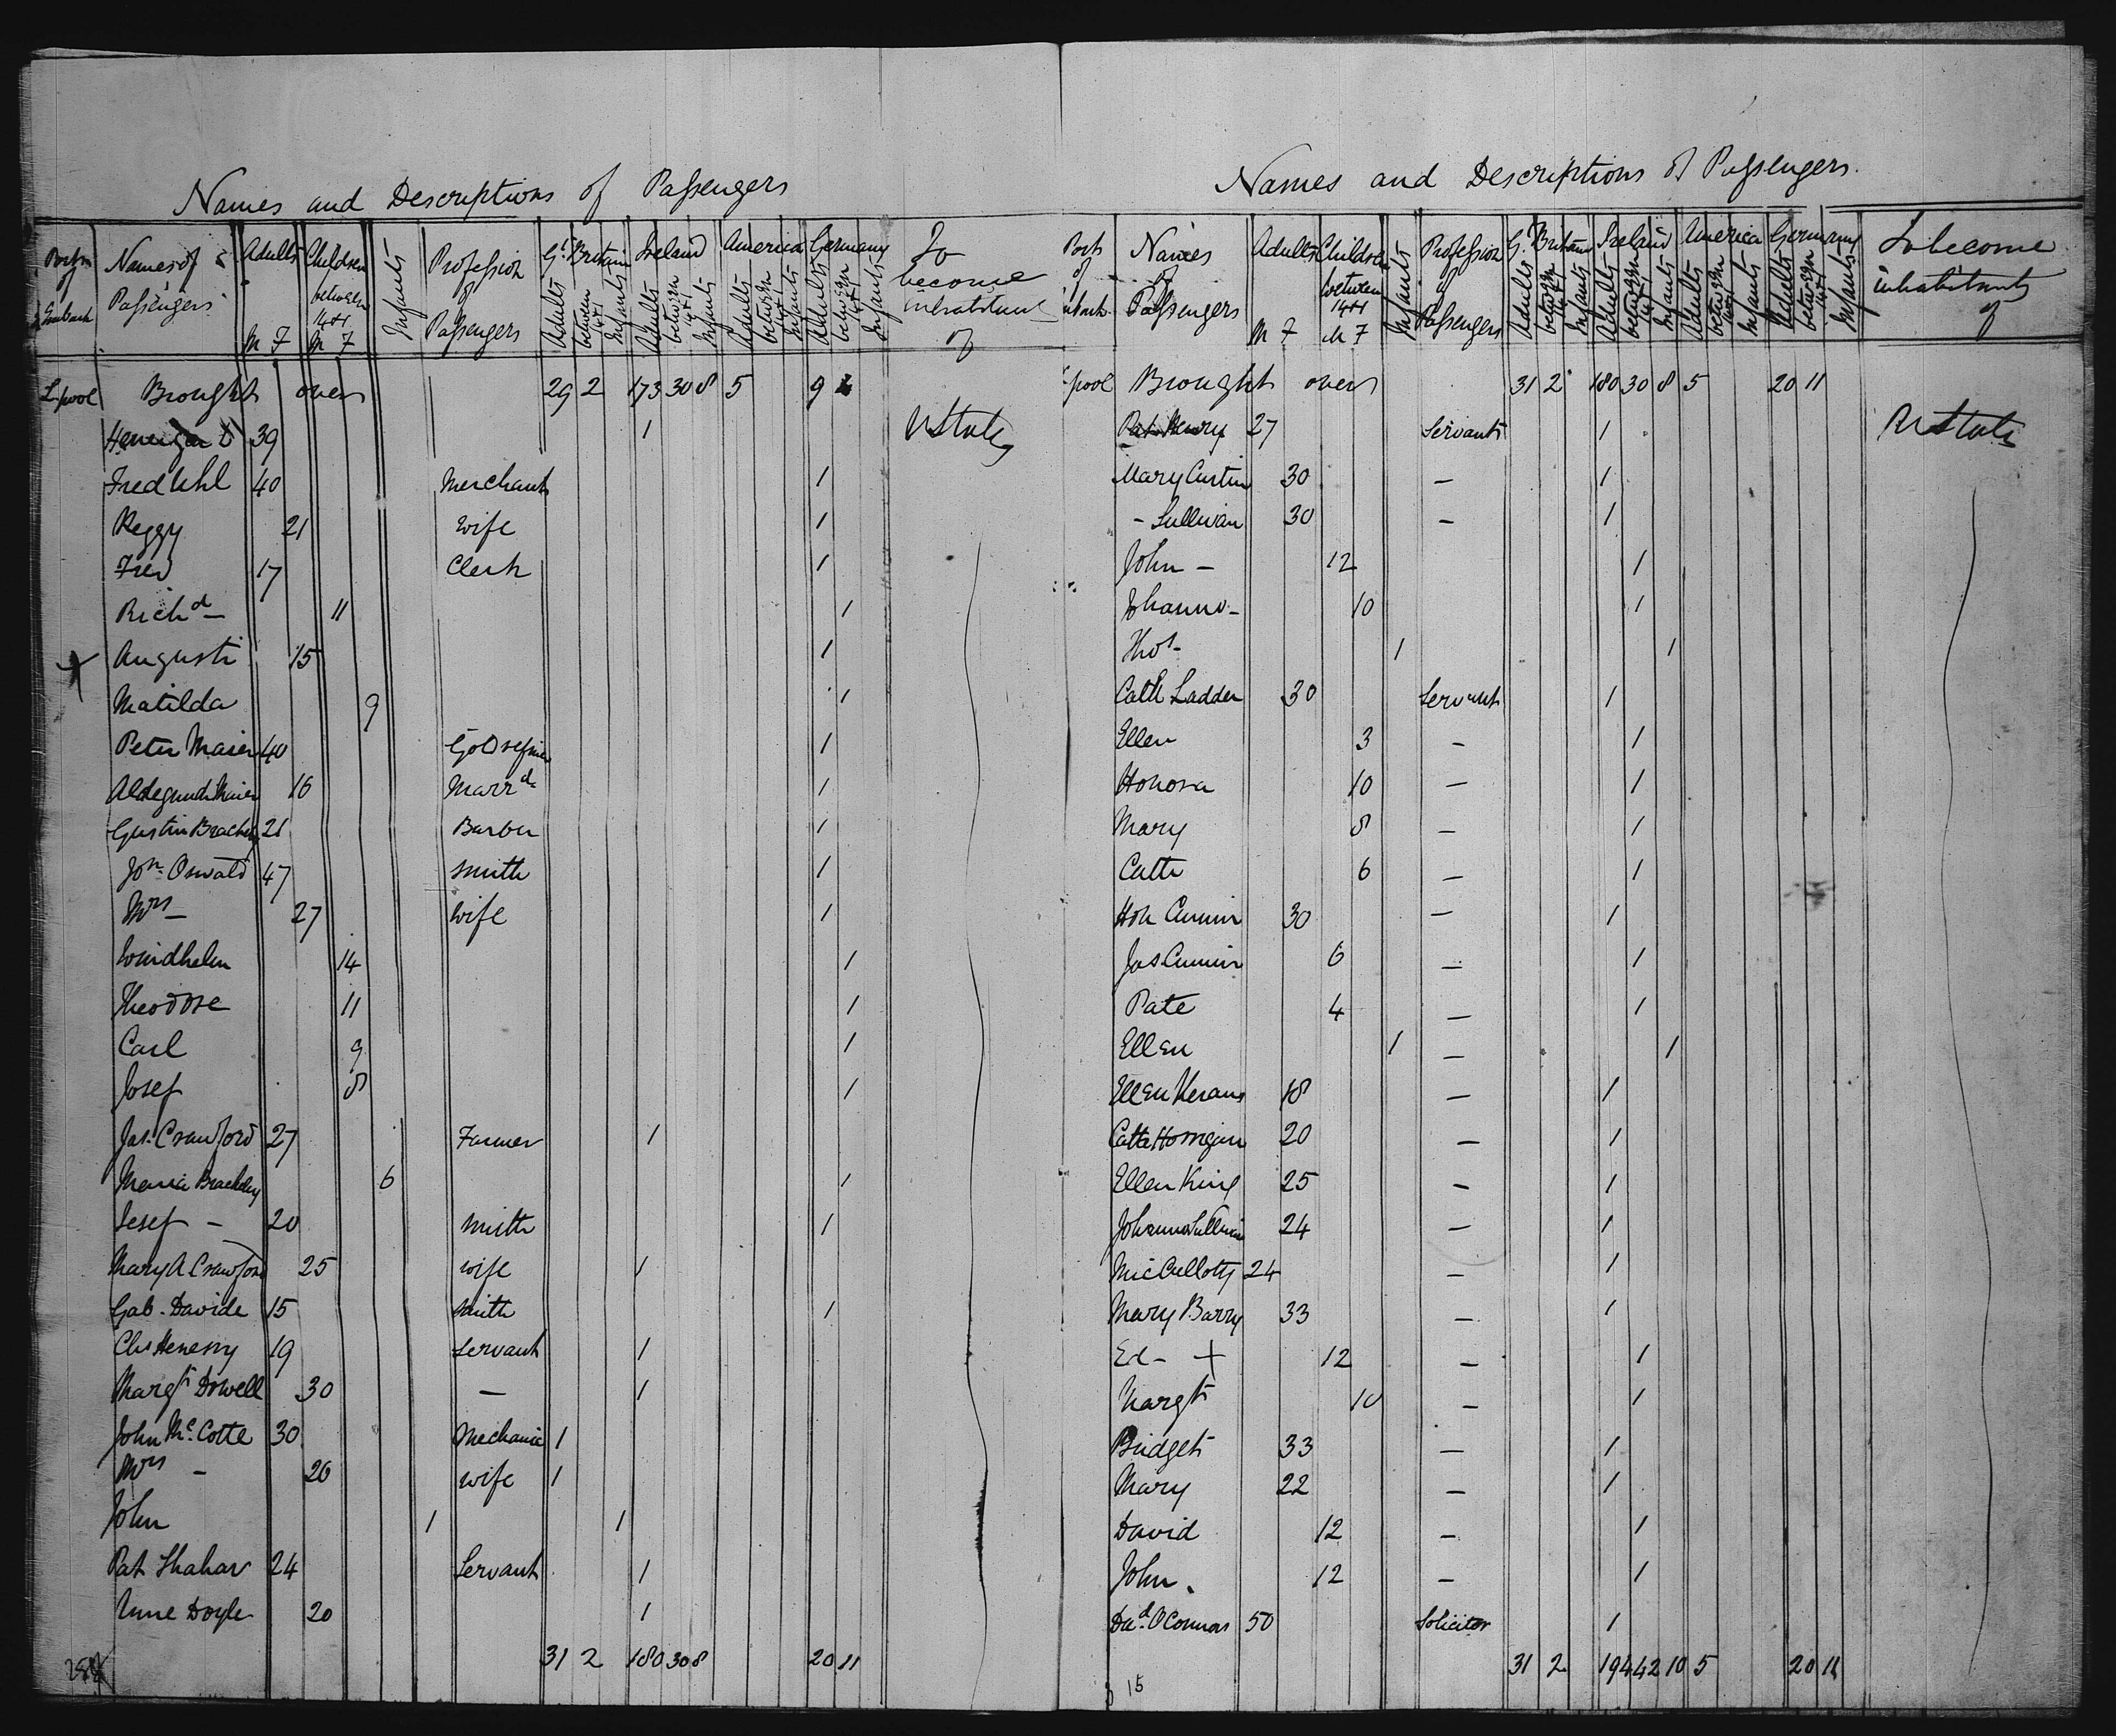 Names and Descriptions of Passengers
Port of Embark | Names of Passengers | Adults M F | Children between 14+1 M F | Infants | Profession of Passengers | Gt Britain Adults between 14+1 Infants | Ireland Adults between 14+1 Infants | America Adults between 14+1 Infants | Germany Adults between 14+1 Infants | To become inhabitants of
L pool Brought over 29 2 173 30 8 5 9
39 1 U States
Fred Uhl 40 Merchant 1
Peggy 21 Wife 1
Fred 17 Clerk 1
Richd - 11 1
Augusti 15 1
Matilda 9 1
Peter Maier 40 Gold refiner 1
Aldegunde Maier 16 Marrd 1
Gustin 21 Barber 1
Jon Oswald 47 Smith 1
Mrs - 27 Wife 1
Windhelm 14 1
Theodore 11 1
Carl 9 1
Josef 8 1
Jas. Crawford 27 Farmer 1
Maria Brackley 6 1
Josef - 20 Smith 1
Mary A Crawford 25 Wife 1
Gab. Davide 15 Smith 1
Chs Henesry 19 Servant 1
Margt Dowell 30 - 1
John Mc Cotte 30 Mechanic 1
Mrs - 26 Wife 1
John 1 1
Pat Shahav 24 Servant 1
Anne Doyle 20 1
31 2 180 30 8 20 11
Names and Descriptions of Passengers.
Port of Embark | Names of Passengers | Adults M F | Children between 14+1 M F | Infants | Profession of Passengers | Gt Britain Adults between 14+1 Infants | Ireland Adults between 14+1 Infants | America Adults between 14+1 Infants | Germany Adults between 14+1 Infants | To become inhabitants of
L pool Brought over 31 2 180 30 8 5 20 11
Pat Henry 27 Servant 1 U State
Mary Curtin 30 - 1
- Sullivan 30 - 1
John - 12 1
Johanna - 10 1
Thos - 1 1
Cath Ladden 30 Servant 1
Ellen 3 - 1
Honora 10 - 1
Mary 8 - 1
Cath 6 - 1
Hon Cumin 30 - 1
Jas Cumin 6 - 1
Pate 4 - 1
Ellen 1 - 1
Ellen Kerans 18 - 1
Cath Horrigan 20 - 1
Ellen King 25 - 1
Johanna Sullivan 24 - 1
Mic Culloty 24 - 1
Mary Barry 33 - 1
Ed - + 12 - 1
Margt 10 - 1
Bridget 33 - 1
Mary 22 - 1
David 12 - 1
John. 12 - 1
Dad. O Connors 50 Solicitor 1
31 2 194 42 10 5 20 11
15